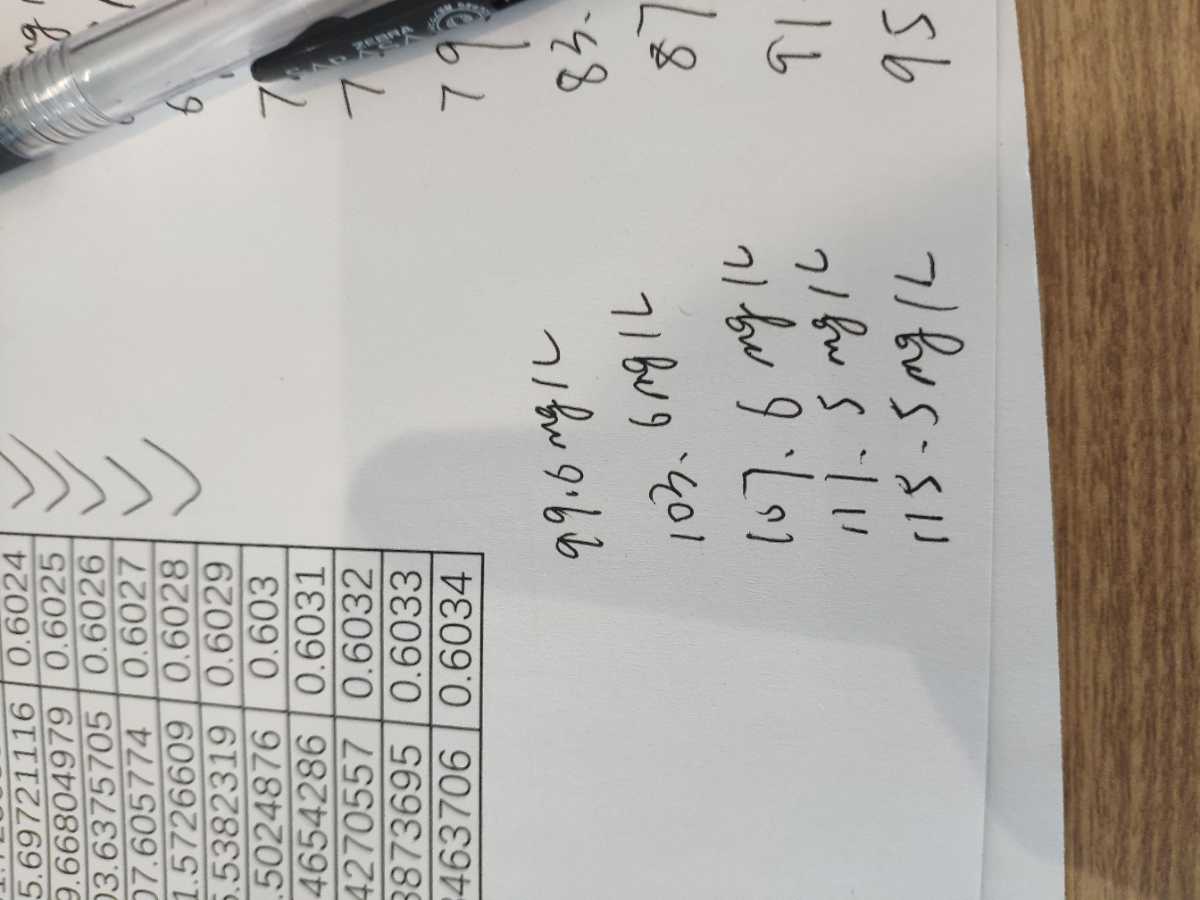 5.69721116 0.6024
9.66804979 0.6025
03.6375705 0.6026
07.605774 0.6027
1.5726609 0.6028
5.5382319 0.6029
.5024876 0.603
.4654286 0.6031
4270557 0.6032
3873695 0.6033
34463706 0.6034
7
7
79
83.
87
91
95
99.6 mg/L
103.6 mg/L
107.6 mg/L
111.5 mg/L
115.5 mg/L